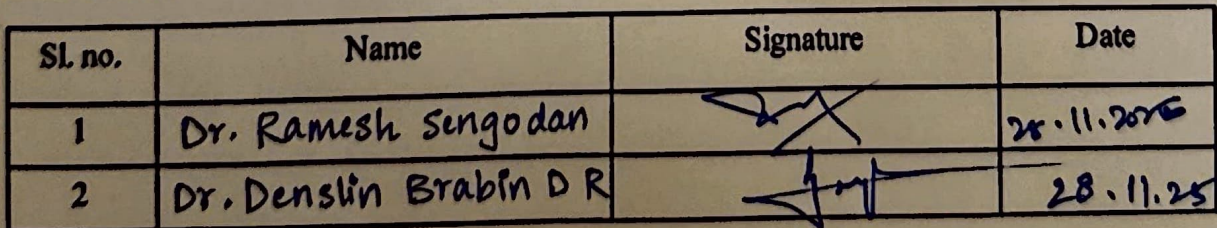 Sl. no. Name Signature Date
1 Dr. Ramesh Sengodan 28.11.2025
2 Dr. Denslin Brabin D R 28.11.25